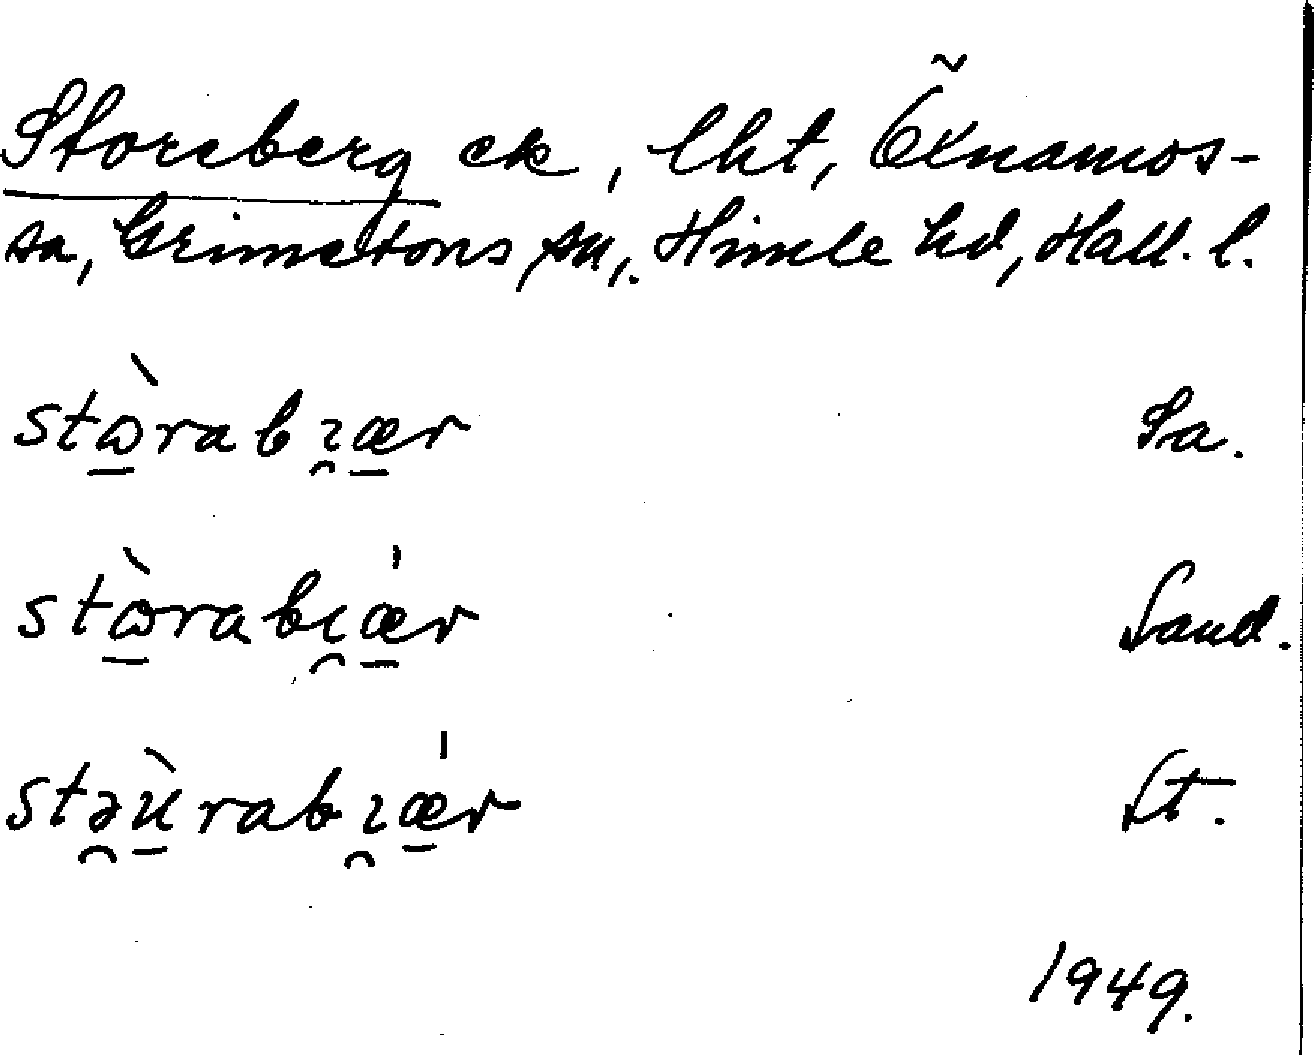 Storeberg ek, lht, Öxnamos-
sa, Grimetons sn, Himle hd, Hall. l.
stὼrabıær Sa.
stὼrabıǽr Sand.
stəùrabıǽr St.
1949.